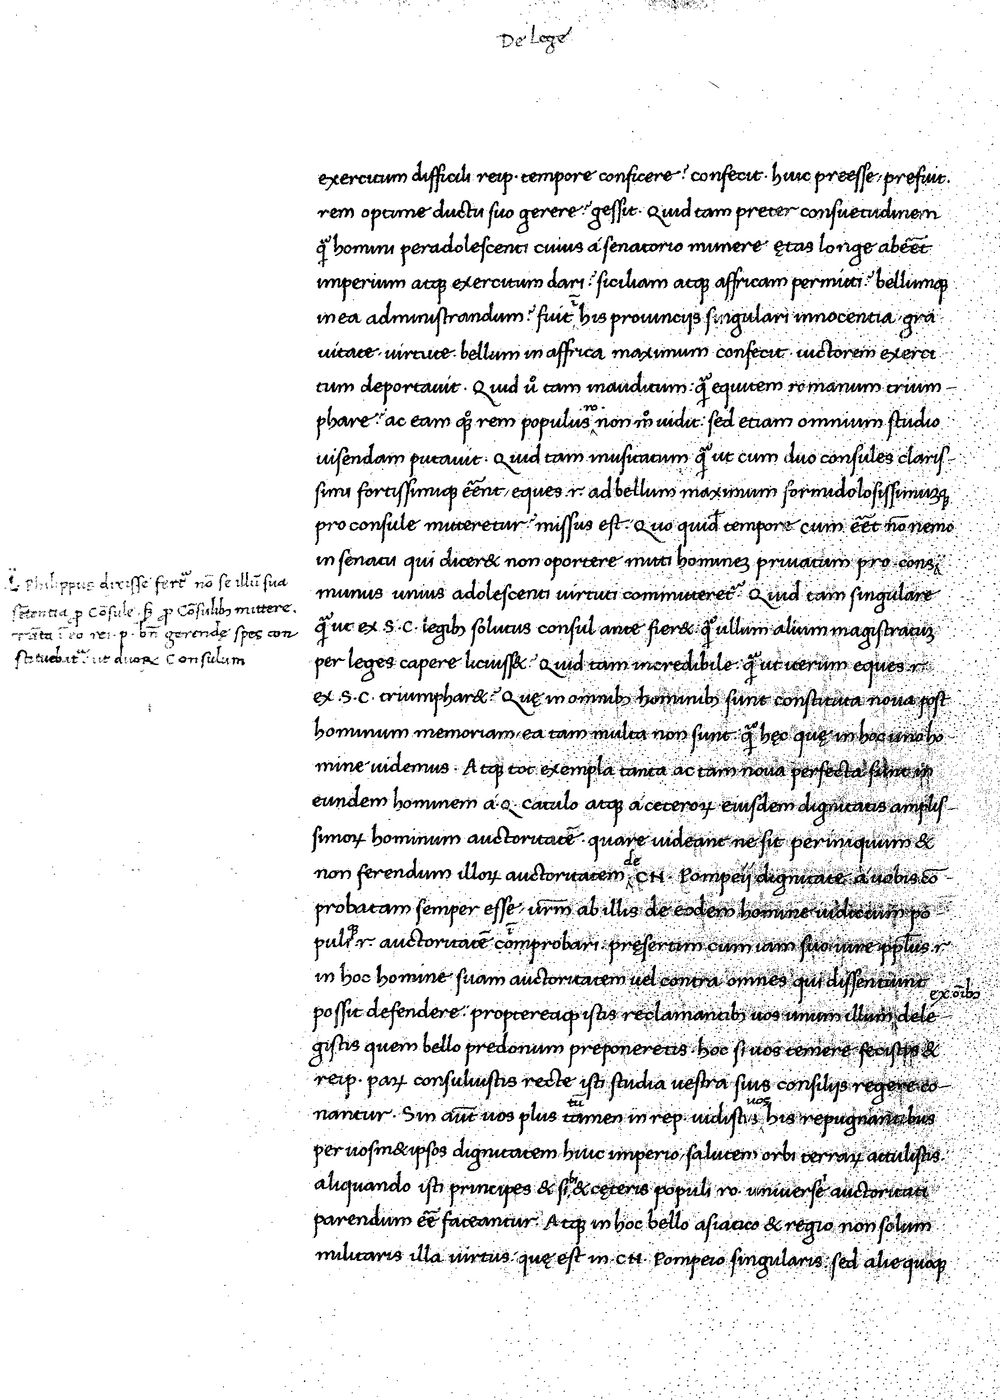 De Lege
exercitum difficili reip. tempore conficere? confecit. huic preesse, prefuit.
rem optime ductu suo gerere? gessit. Quid tam preter consuetudinem
q̄ homini peradolescenti cuius a senatorio munere ętas longe abeēt
imperium atq; exercitum dari? siciliam atq; affricam permitti? bellumq;
in ea administrandum? fuit ī his prouincijs singulari innocentia, gra
uitate. uirtute. bellum in affrica maximum confecit. uictorem exerci
tum deportauit. Quid ů tam inauditum. q̄ equitem romanum trium-
phare? ac eam q̊q; rem populus ro non m̊ uidit. sed etiam omnium studio
uisendam putauit. Quid tam inusitatum q̄ ut cum duo consules claris-
simi fortissimiq; eēnt, eques .r. ad bellum maximum formidolosissimumq;
pro consule mitteretur? missus est. Quo quid̄ tempore cum eēt nō nemo
in senatu qui diceret non oportere mitti hominem priuatum pro .cons.
L. Philippus dixisse fert̄ nō se illū sua
sētentia p̱ Cōsule, s; p̱ Cōsulib; mittere.
Tāta ī eo rei .p. bn̄ gerendę spes con
stituebat̄. ut duoꝝ Consulum
munus unius adolescenti uirtuti committeret̄. Quid tam singulare
q̄ ut ex .S.C. legib; solutus consul ante fieret. q̄ ullum alium magistratum
per leges capere licuisset. Quid tam incredibile. q̄ ut iterum eques .r.
ex .S.C. triumpharet? Quę in omnib; hominib; sunt constituta noua post
hominum memoriam, ea tam multa non sunt. q̄ hęc quę in hoc uno ho-
mine uidemus. Atq; tot exempla tanta ac tam noua perfecta sunt in
eundem hominem a .Q. Catulo atq; a ceteroꝝ eiusdem dignitatis amplis-
simoꝝ hominum auctoritatē. quare uideant ne sit periniquum &
non ferendum illoꝝ auctoritatem de .CN. Pompeij dignitate a uobis cō-
probatam semper esse, urm̄ ab illis de eodem homine iudicium po
puliq; .r. auctoritatē cōmprobari. presertim cum iam suo iure pp̄lus .r.
in hoc homine suam auctoritatem uel contra omnes qui dissentiunt
possit defendere. propterea q; istis reclamantib; uos unum illum ex oīb; dele
gistis quem bello predonum preponeretis. hoc si uos temere fecistis &
reip. paꝝ consuluistis recte isti studia uestra suis consilijs regere co-
nantur. Sin aut̄ uos plus tū tamen in rep. uidistis, uos his repugnantibus
per uosm&ipsos dignitatem huic imperio, salutem orbi terraꝝ attulistis.
aliquando isti principes & sib; & cęteris populi ro. uniuersę auctoritati
parendum eē fateantur. Atq; in hoc bello asiatico & regio non solum
militaris illa uirtus. quę est in .CN. Pompeio singularis. sed alie quoq;